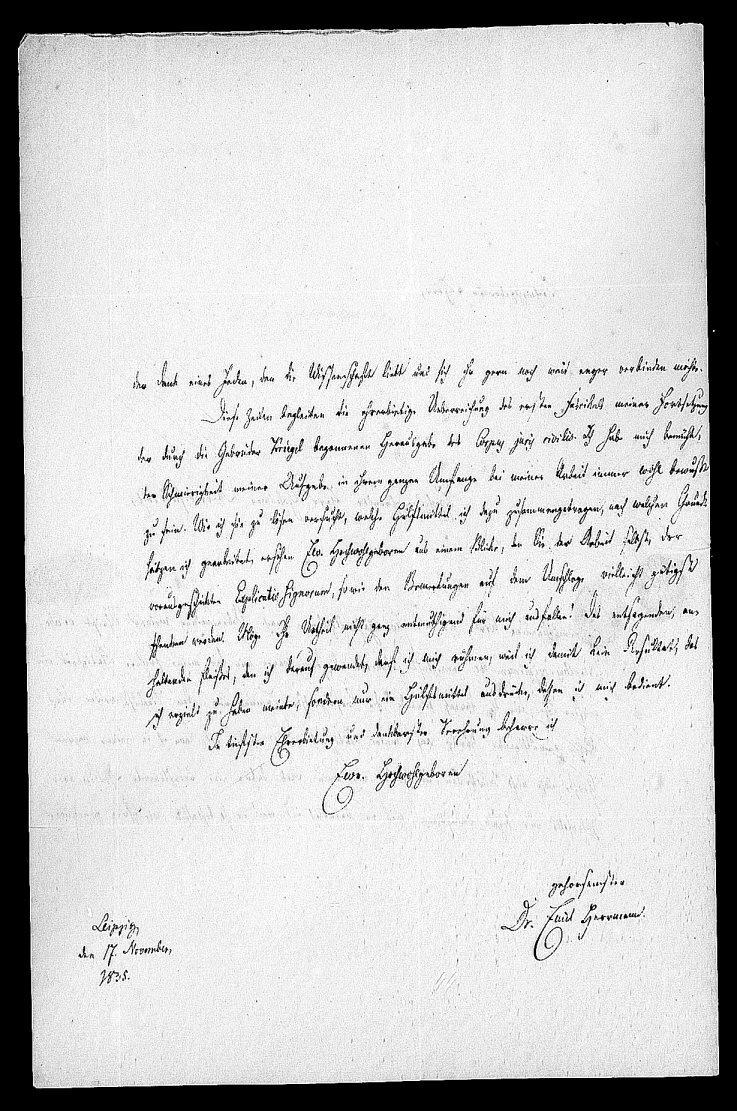 der Dank eines Jeden, den die Wissenschaft liebt und sich ihr gern noch enger verbinden möchte.
Diese Zeilen begleiten die ehrerbietige Ueberreichung des ersten Fascikels meiner Fortsetzung
der durch die Gebrüder Kriegel begonnenen Herausgabe des Corpus juris civilis. Ich habe mich bemüht,
der Schwierigkeit meiner Aufgabe in ihrem ganzen Umfange bei meiner Arbeit immer wohl bewußt
zu sein. Wie ich sie zu lösen versucht, welche Hülfsmittel ich dazu zusammengetragen, nach welchen Grund-
sätzen ich gearbeitet, ersehen Ew. Hochwohlgeboren aus einem Blicke, den Sie der Arbeit selbst, der
vorausgeschickten Explicatio signorum, sowie den Bemerkungen auf dem Umschlage vielleicht gütigst
schenken werden. Möge Ihr Urtheil nicht ganz entmuthigend für mich ausfallen! Des entsagenden, an-
haltenden Fleißes, den ich darauf gewendet, darf ich mich rühmen, weil ich damit kein Resultat, das
ich erzielt zu haben meinte, sondern nur ein Hülfsmittel ausdrücke, dessen ich mich bedient.
In tiefster Ehrerbietung und dankbarster Verehrung beharre ich
Ew. Hochwohlgeboren
gehorsamster
Dr. Emil Herrmann.
Leipzig,
den 17. November,
1835.